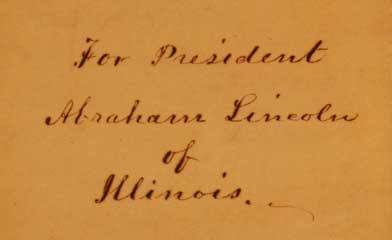 For President
Abraham Lincoln
of
Illinois.